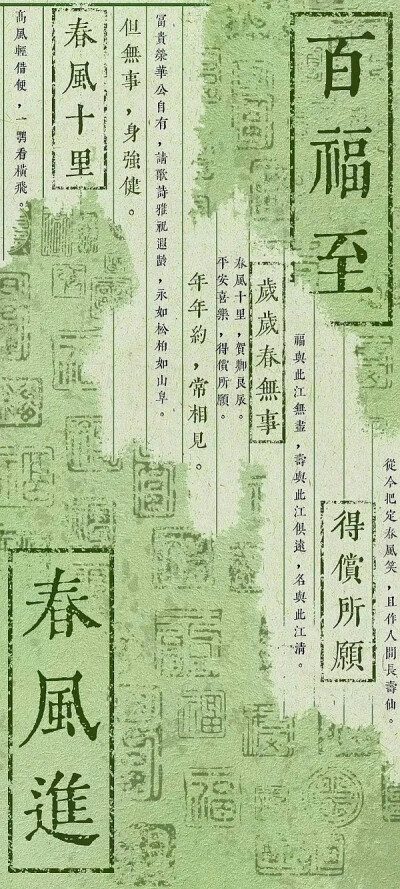 百福至
從今把定春風笑，且作人間長壽仙。
得償所願
福與此江無盡，壽與此江俱遠，名與此江清。
歲歲春無事
春風十里，賀卿良辰。
平安喜樂，得償所願。
年年約，常相見。
富貴榮華公自有，請歌詩雅祝遐齡，永如松柏如山阜。
但無事，身強健。
春風十里
高風輕借便，一鶚看橫飛。
春風進